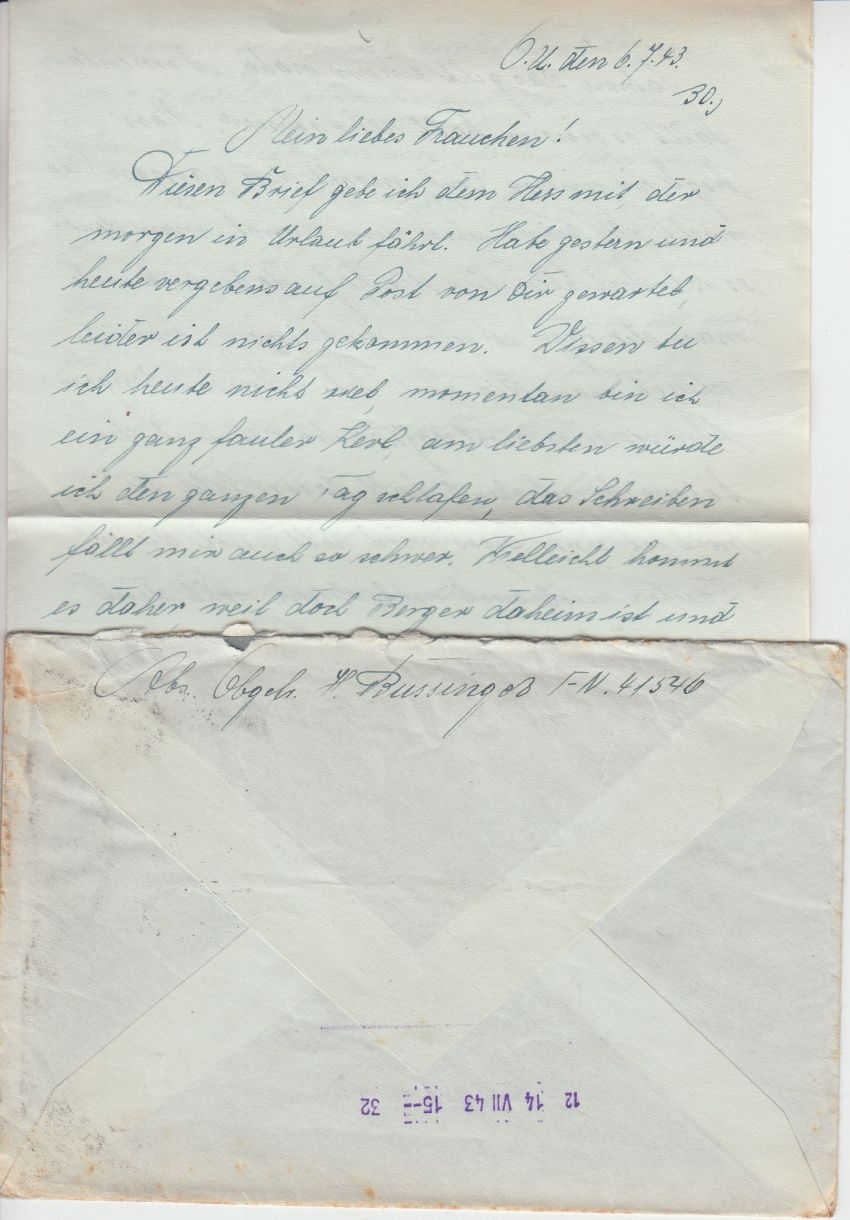 O.U. den 6.7.43.
30.)
Mein liebes Frauchen!
Diesen Brief gebe ich dem Hess mit, der
morgen in Urlaub fährt. Habe gestern und
heute vergebens auf Post von Dir gewartet,
leider ist nichts gekommen. Wissen tu
ich heute nicht viel, momentan bin ich
ein ganz fauler Kerl, am liebsten würde
ich den ganzen Tag schlafen, das Schreiben
fällt mir auch so schwer. Vielleicht kommt
es daher, weil doch Berger daheim ist und
Abs. Obgefr. H. F.N. 41546
12 14 VII 43 15- 32